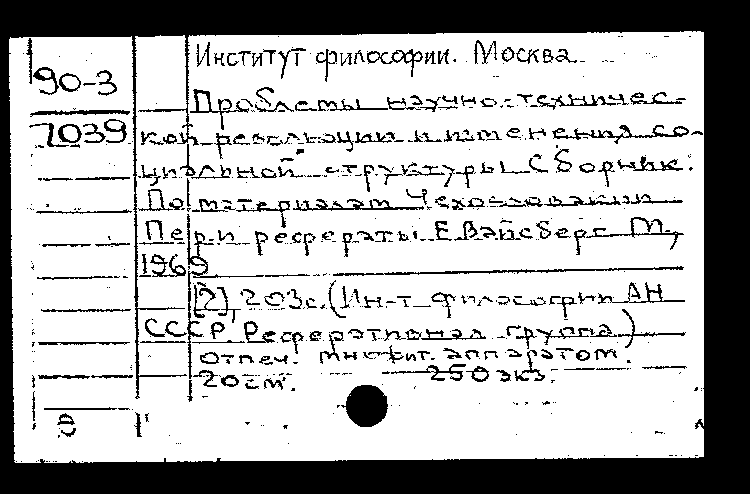 Институт философии. Москва
90-3
Проблемы научно-техничес-
7039
кой революции и изменения со-
циальной структуры Сборник.
По материалам Чехословакии
Пер. и рефераты Е. Вайсберг М.,
1969
[2], 203 с. (Ин-т философии АН
СССР Реферативная группа)
Отпеч. множит. аппаратом.
20 см. 250 экз.